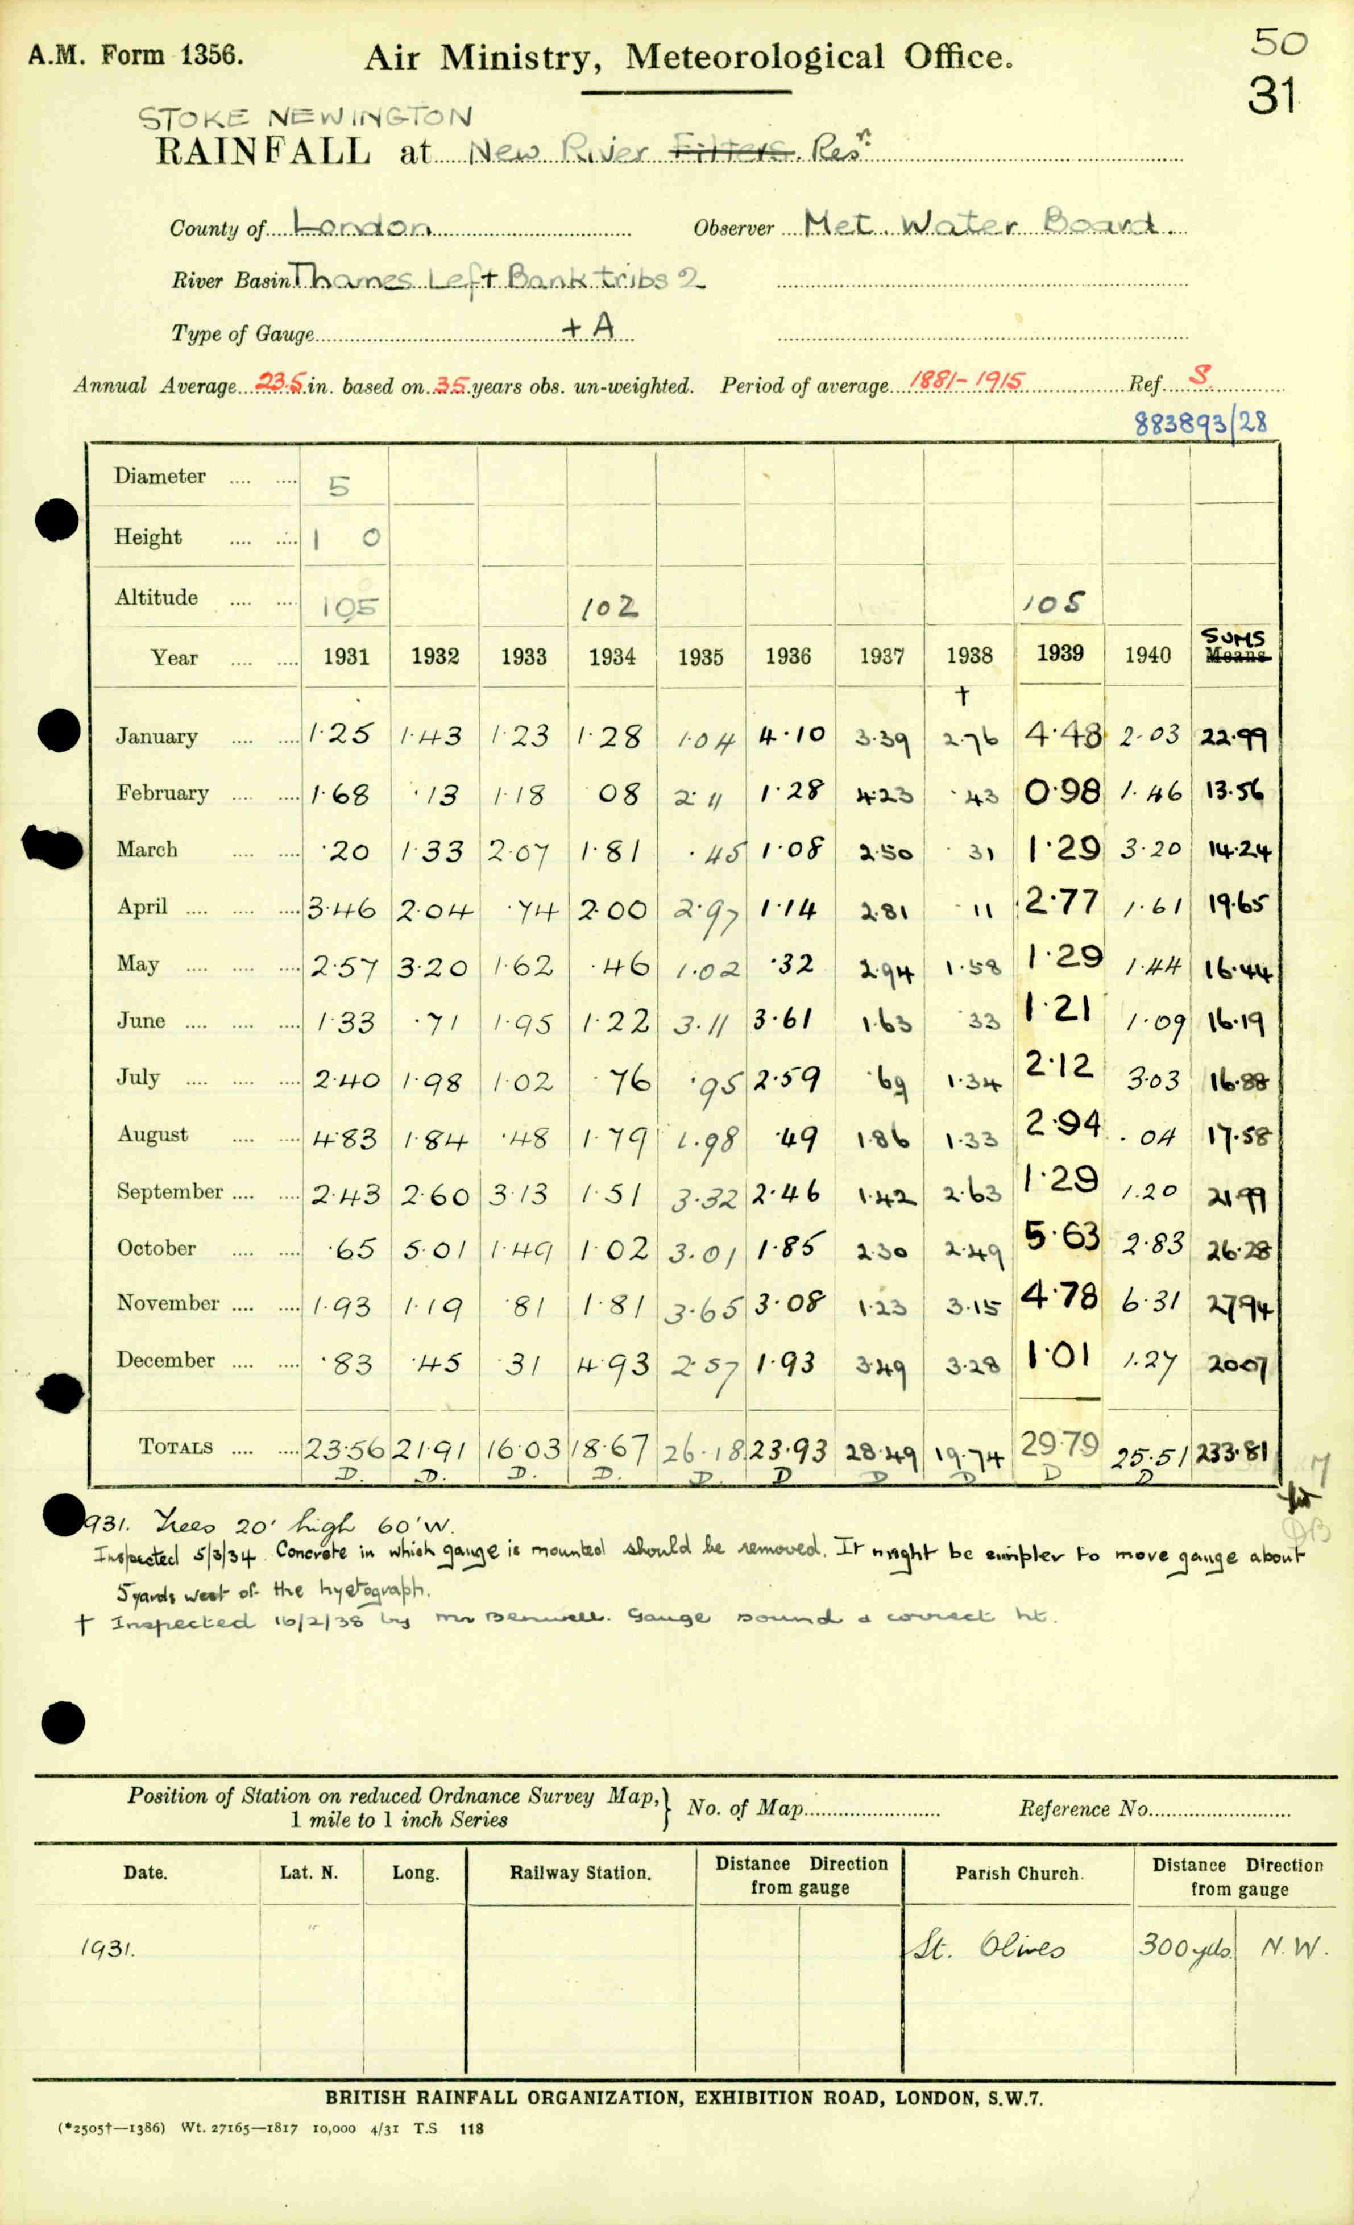 A.M. Form 1356.
Air Ministry, Meteorological Office.
50
31
STOKE NEWINGTON
RAINFALL at New River Filters. Resr.
County of London
Observer Met. Water Board.
River Basin Thames Left Bank tribs 2
Type of Gauge + A
Annual Average 23.5 in. based on 35 years obs. un-weighted. Period of average 1881-1915 Ref. S.
883893/28
Diameter .... .... 5
Height .... .... 1 0
Altitude .... .... 105 102 105
Year .... .... 1931 1932 1933 1934 1935 1936 1937 1938 1939 1940 SUMS Means
†
January .... .... 1.25 1.43 1.23 1.28 1.04 4.10 3.39 2.76 4.48 2.03 22.99
February .... .... 1.68 .13 1.18 08 2.11 1.28 4.23 .43 0.98 1.46 13.56
March .... .... .20 1.33 2.07 1.81 .45 1.08 2.50 .31 1.29 3.20 14.24
April .... .... .... 3.46 2.04 .74 2.00 2.97 1.14 2.81 .11 2.77 1.61 19.65
May .... .... .... 2.57 3.20 1.62 .46 1.02 .32 2.94 1.58 1.29 1.44 16.44
June .... .... .... 1.33 .71 1.95 1.22 3.11 3.61 1.63 .33 1.21 1.09 16.19
July .... .... .... 2.40 1.98 1.02 .76 .95 2.59 .69 1.34 2.12 3.03 16.88
August .... .... 4.83 1.84 .48 1.79 1.98 .49 1.86 1.33 2.94 .04 17.58
September .... .... 2.43 2.60 3.13 1.51 3.32 2.46 1.42 2.63 1.29 1.20 21.99
October .... .... .65 5.01 1.49 1.02 3.01 1.85 2.30 2.49 5.63 2.83 26.28
November .... .... 1.93 1.19 .81 1.81 3.65 3.08 1.23 3.15 4.78 6.31 27.94
December .... .... .83 .45 .31 4.93 2.57 1.93 3.49 3.28 1.01 1.27 20.07
TOTALS .... .... 23.56 21.91 16.03 18.67 26.18 23.93 28.49 19.74 29.79 25.51 233.81
D. D. D. D. D. D D D D D
1931. Trees 20' high 60' W.
Inspected 5/3/34. Concrete in which gauge is mounted should be removed. It might be simpler to move gauge about
5 yards west of the hyetograph.
† Inspected 16/2/38 by Mr Benwell. Gauge sound & correct ht.
Position of Station on reduced Ordnance Survey Map,
1 mile to 1 inch Series
No. of Map
Reference No.
Date. Lat. N. Long. Railway Station. Distance Direction from gauge Parish Church. Distance Direction from gauge
1931. St. Olives 300 yds. N.W.
BRITISH RAINFALL ORGANIZATION, EXHIBITION ROAD, LONDON, S.W.7.
(*2505†—1386) Wt. 27165—1817 10,000 4/31 T.S 118